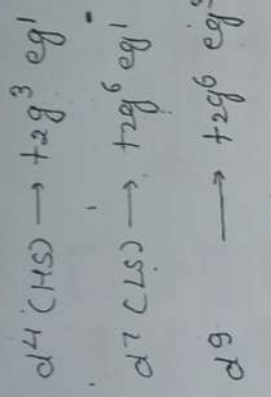 d4 (HS) → t2g³ eg¹
d7 (LS) → t2g⁶ eg¹
d9 → t2g⁶ eg